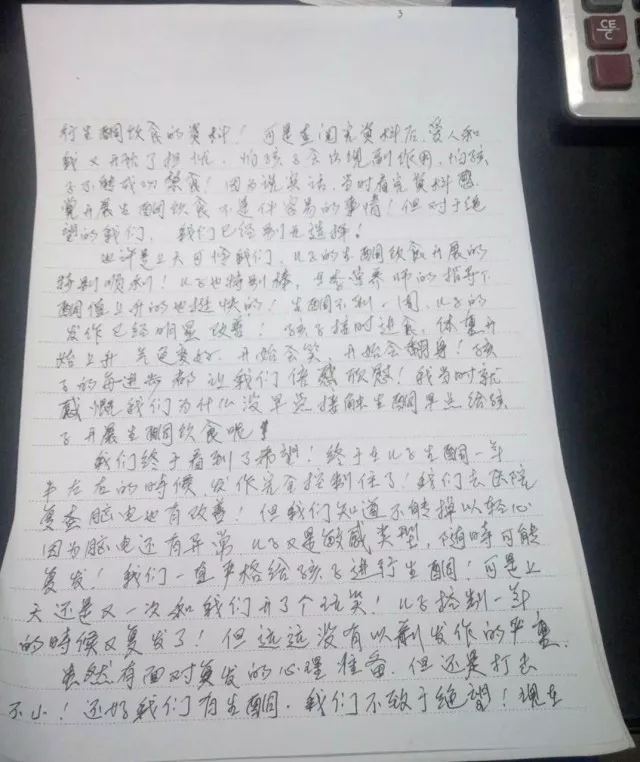 3
CE/C
%
行生酮饮食的资料！可是查阅完资料后，爱人和
我又开始了担忧，怕孩子会出现副作用，怕孩
子不能成功禁食！因为说实话，当时看完资料感
觉开展生酮饮食不是件容易的事情！但对于绝
望的我们，我们已经别无选择！
也许是上天可怜我们，儿子的生酮饮食开展的
特别顺利！儿子也特别棒，且在营养师的指导下
酮值上升的也挺快的！生酮不到一周，儿子的
发作已经明显改善！孩子按时进食，体重开
始上升，气色变好，开始会笑，开始会翻身！孩
子的每进步都让我们倍感欣慰！我当时就
感慨我们为什么没早点接触生酮早点给孩
子开展生酮饮食呢！
我们终于看到了希望！终于在儿子生酮一年
半左右的時候，发作完全控制住了！我们去医院
复查脑电也有改善！但我们知道不能掉以轻心
因为脑电还有异常，儿子又是敏感类型，随時可能
复发！我们一直严格给孩子进行生酮！可是上
天还是又一次和我们开了个玩笑！儿子控制一年
的時候又复发了！但远远没有以前发作的严重
虽然有面对复发的心理准备，但还是打击
不小！还好我们有生酮，我们不致于绝望！现在